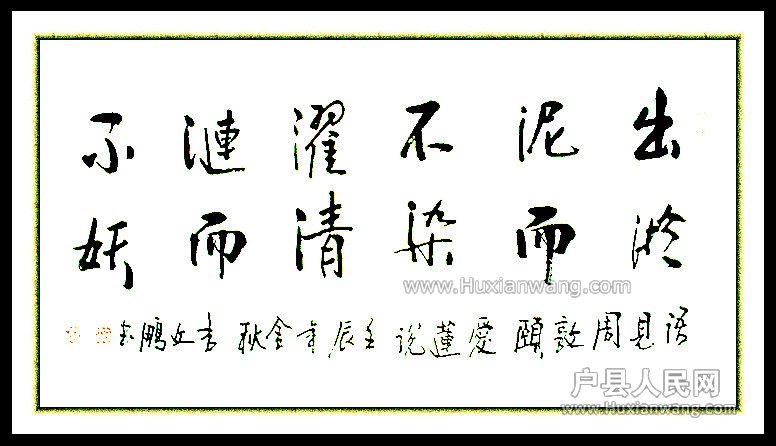 出淤
泥而
不染
濯清
漣而
不妖
語見周敦頤愛蓮說壬辰年金秋 鵬書
www.Huxianwang.com
户县人民网
www.Huxianwang.com